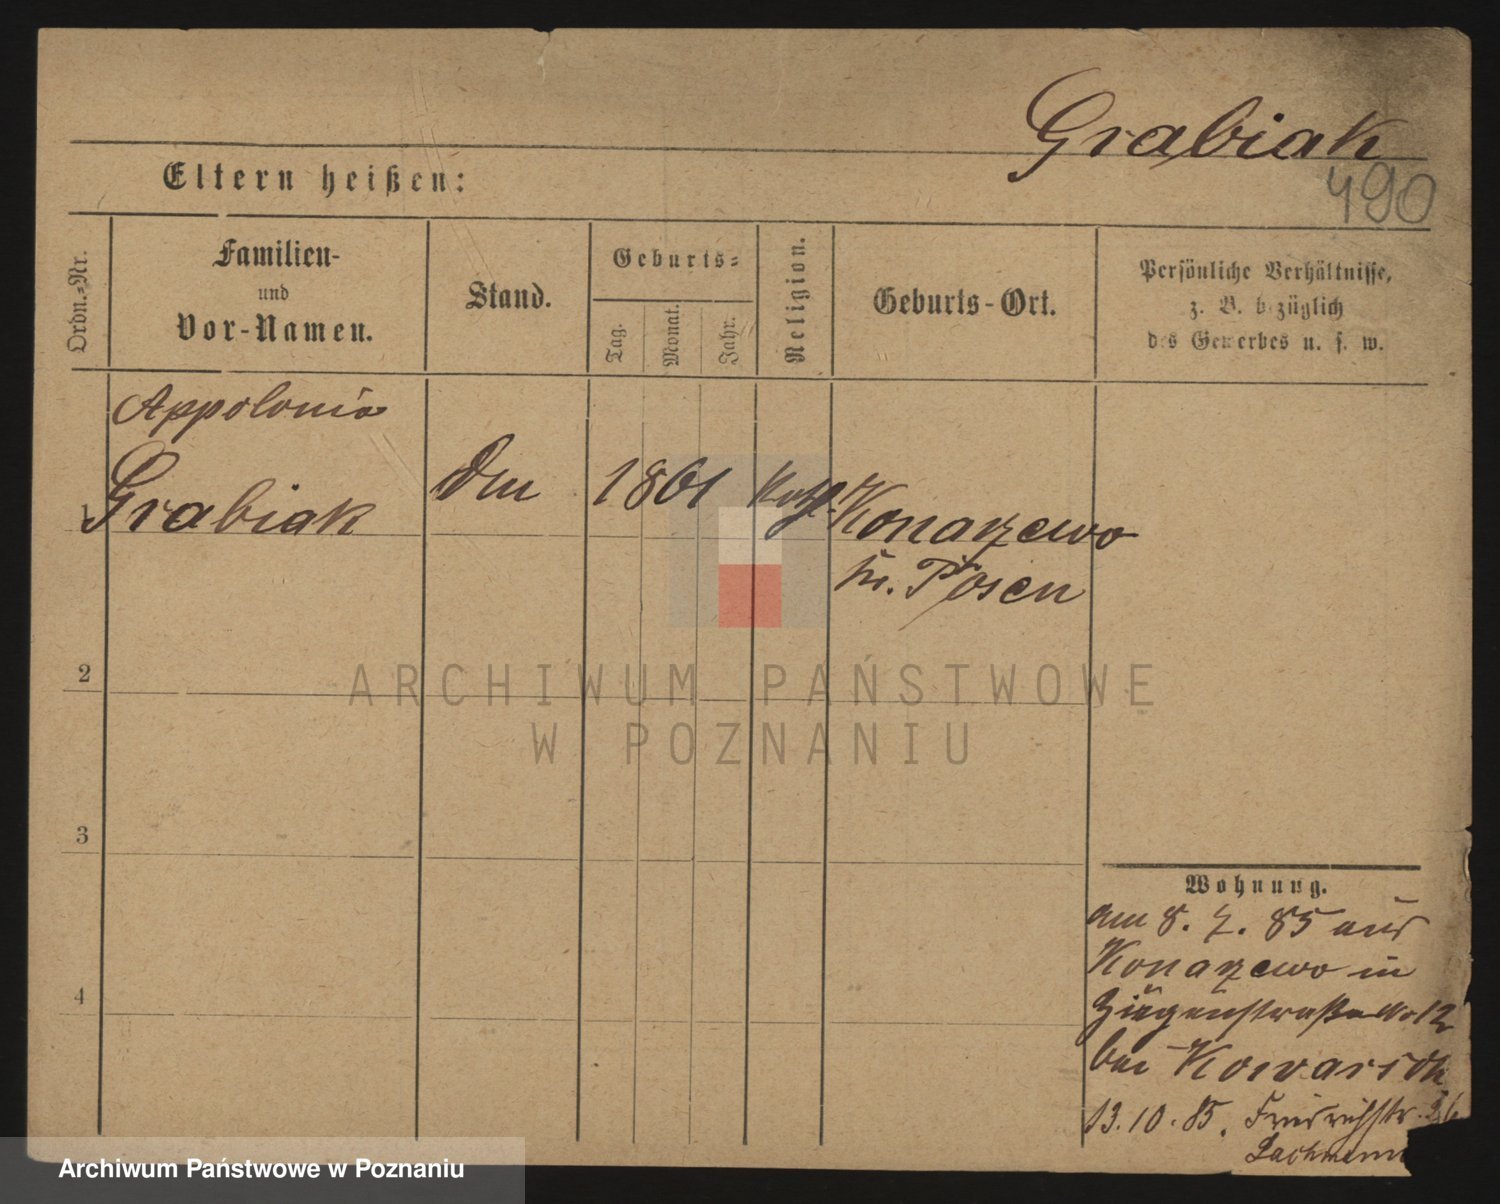 Grabiak
490
Eltern heißen:
Ordn.=Nr.
Familien-
und
Vor-Namen.
Stand.
Geburts=
Tag.
Monat.
Jahr.
Religion.
Geburts-Ort.
Persönliche Verhältnisse,
z. B. bezüglich
des Gewerbes u. s. w.
Appolonia
1 Grabiak
1861
Kath.
Konarzewo
Kr. Posen
2
3
4
ARCHIWUM PAŃSTWOWE
W POZNANIU
Wohnung.
am 8. 7. 85 aus
Konarzewo in
12
bei
13.10.85. Friedrichstr.
Archiwum Państwowe w Poznaniu